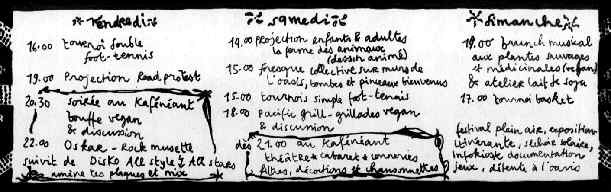 vendredi
14.00 tournoi double
foot-tennis
19.00 Projection Road protest
20.30 soirée au Kaféneant
bouffe vegan
& discussion
22.00 Oskar - Rock musette
suivit de Disko All style 4 All stars
amène tes plaques et mix
samedi
14.00 projection enfants & adultes
la ferme des animaux
(dessin animé)
15.00 fresque collective sur murs de
l'oasis, bombes et pinceaux bienvenus
15.00 tournois simple foot-tennis
18.00 Pacific grill - grillades vegan
& discussion
dès 21.00 au Kaféneant
théâtre * cabaret * conneries
fables, décoctions et chansonnettes
dimanche
12.00 brunch musical
aux plantes sauvages
et médicinales (vegan)
& atelier lait de soya
17.00 tournoi basket
festival plein air, exposition
itinérante, sérhoir solaire,
infokiosk documentation
jeux, détente à l'oasis